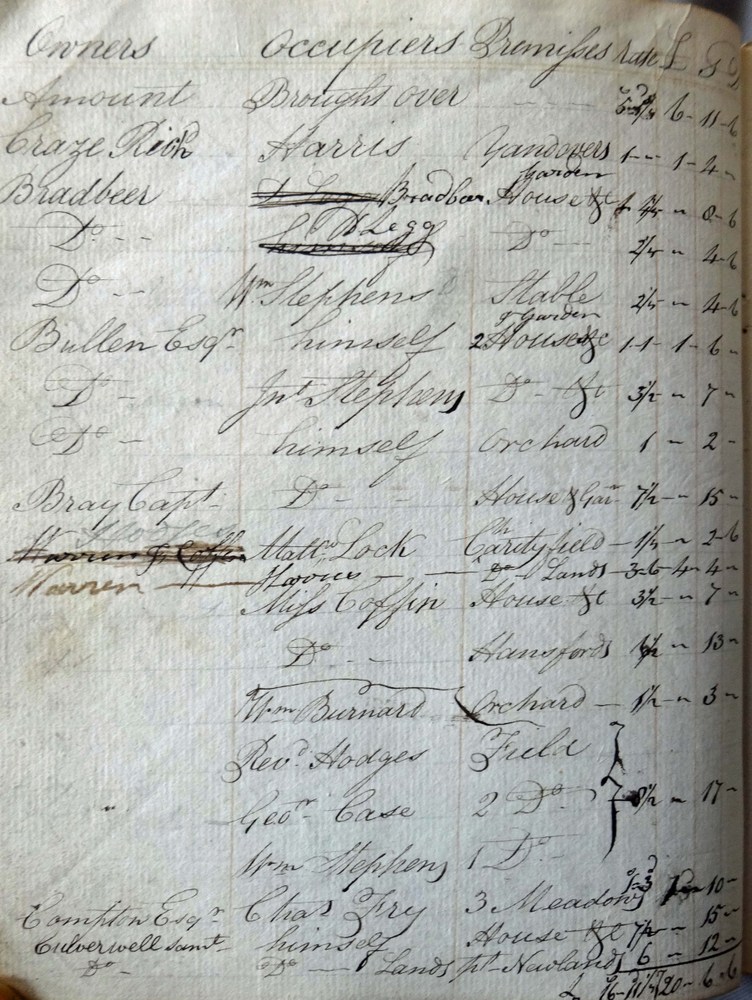 Owners Occupiers Premisses Rate £ S D
Amount Brought over 6 - 11 - 6
Craze Richd Harris Yandovers 1 - - 1 - 4 -
Garden
Bradbeer Bradbeer House &c 4 1/4 - 8 - 6
Do - - Legg Do 2 1/4 - 4 - 6
Do - - Wm Stephens Stable 2 1/4 - 4 - 6
& Garden
Bullen Esqr himself 2 House &c 1 - 1 - 1 - 6 -
Do - Jno Stephens Do - &c 3 1/2 - 7 -
Do - himself Orchard 1 - 2 -
Bray Capt Do - - House & Garn 7 1/2 - 15 -
Warren J Coffin Mattw Lock Carityfield - 1 1/4 - 2 - 6
Warren Do Lands - 3 - 6 - 4 - 4 -
Miss Coffin House &c 3 1/2 - 7 -
Do - - Hansfords 6 1/2 - 13 -
Wm Burnard Orchard - 1 1/2 - 3 -
Revd Hodges Field
Geor Case 2 Do - 8 1/2 - 17 -
Wm Stephens 1 Do -
Compton Esqr Chas Fry 3 Meadows 1 - 3 - 10 -
Culverwell Saml himself House &c 7 1/2 - 15 -
Do - Do - Lands pt Newlands 6 - 12 -
20 - 6 - 6